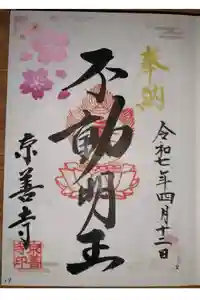 奉納
令和七年四月十二日
不動明王
京善寺